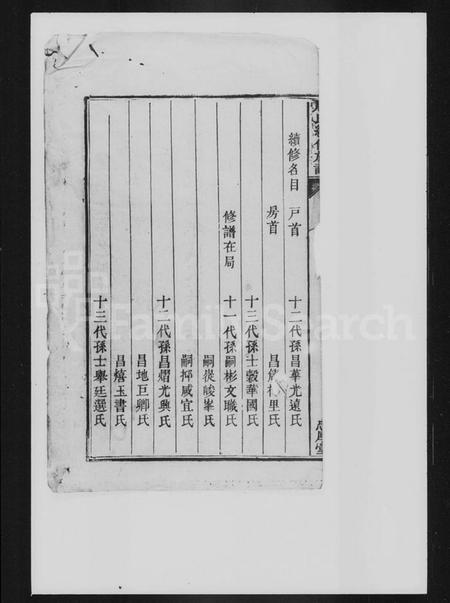 續修名目 戶首 十二代孫昌華光遠氏
房首 昌
里氏
十三代孫士穀華國氏
修譜在局 十一代孫嗣彬文職氏
嗣從峻峯氏
嗣抑威宜氏
十二代孫昌熠光興氏
昌地巨卿氏
昌燽玉書氏
十三代孫士舉廷選氏
FamilySearch